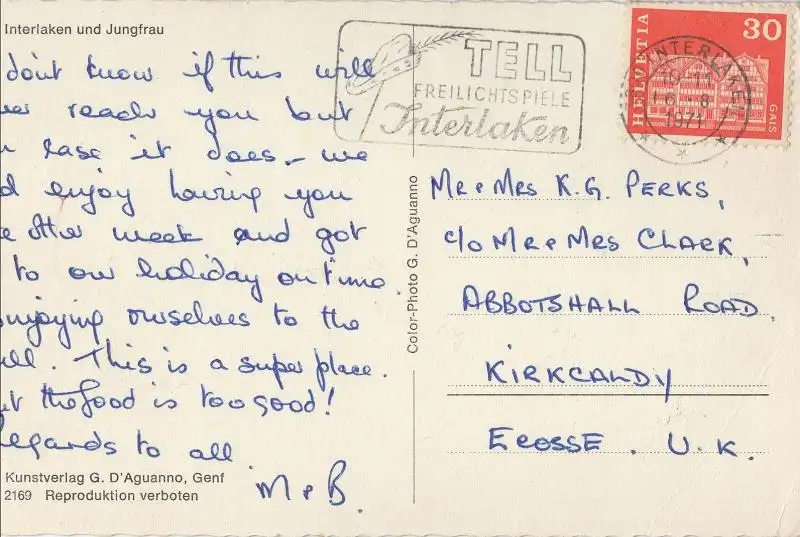 Interlaken und Jungfrau
don't know if this will
reach you but
case it does - we
d enjoy having you
e other week and got
to our holiday on time.
enjoying ourselves to the
ll. This is a super place.
t the food is too good!
egards to all
M & B.
Kunstverlag G. D'Aguanno, Genf
2169 Reproduktion verboten
Color-Photo G. D'Aguanno
TELL
FREILICHTSPIELE
Interlaken
HELVETIA
30
GAIS
INTERLAKEN
1971
MR & MRS K.G. PERKS,
c/o MR & MRS CLARK,
ABBOTSHALL ROAD,
KIRKCALDY
ECOSSE. U.K.